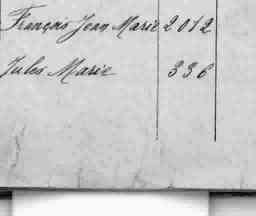 François Jean Marie 2012
Jules Marie 336